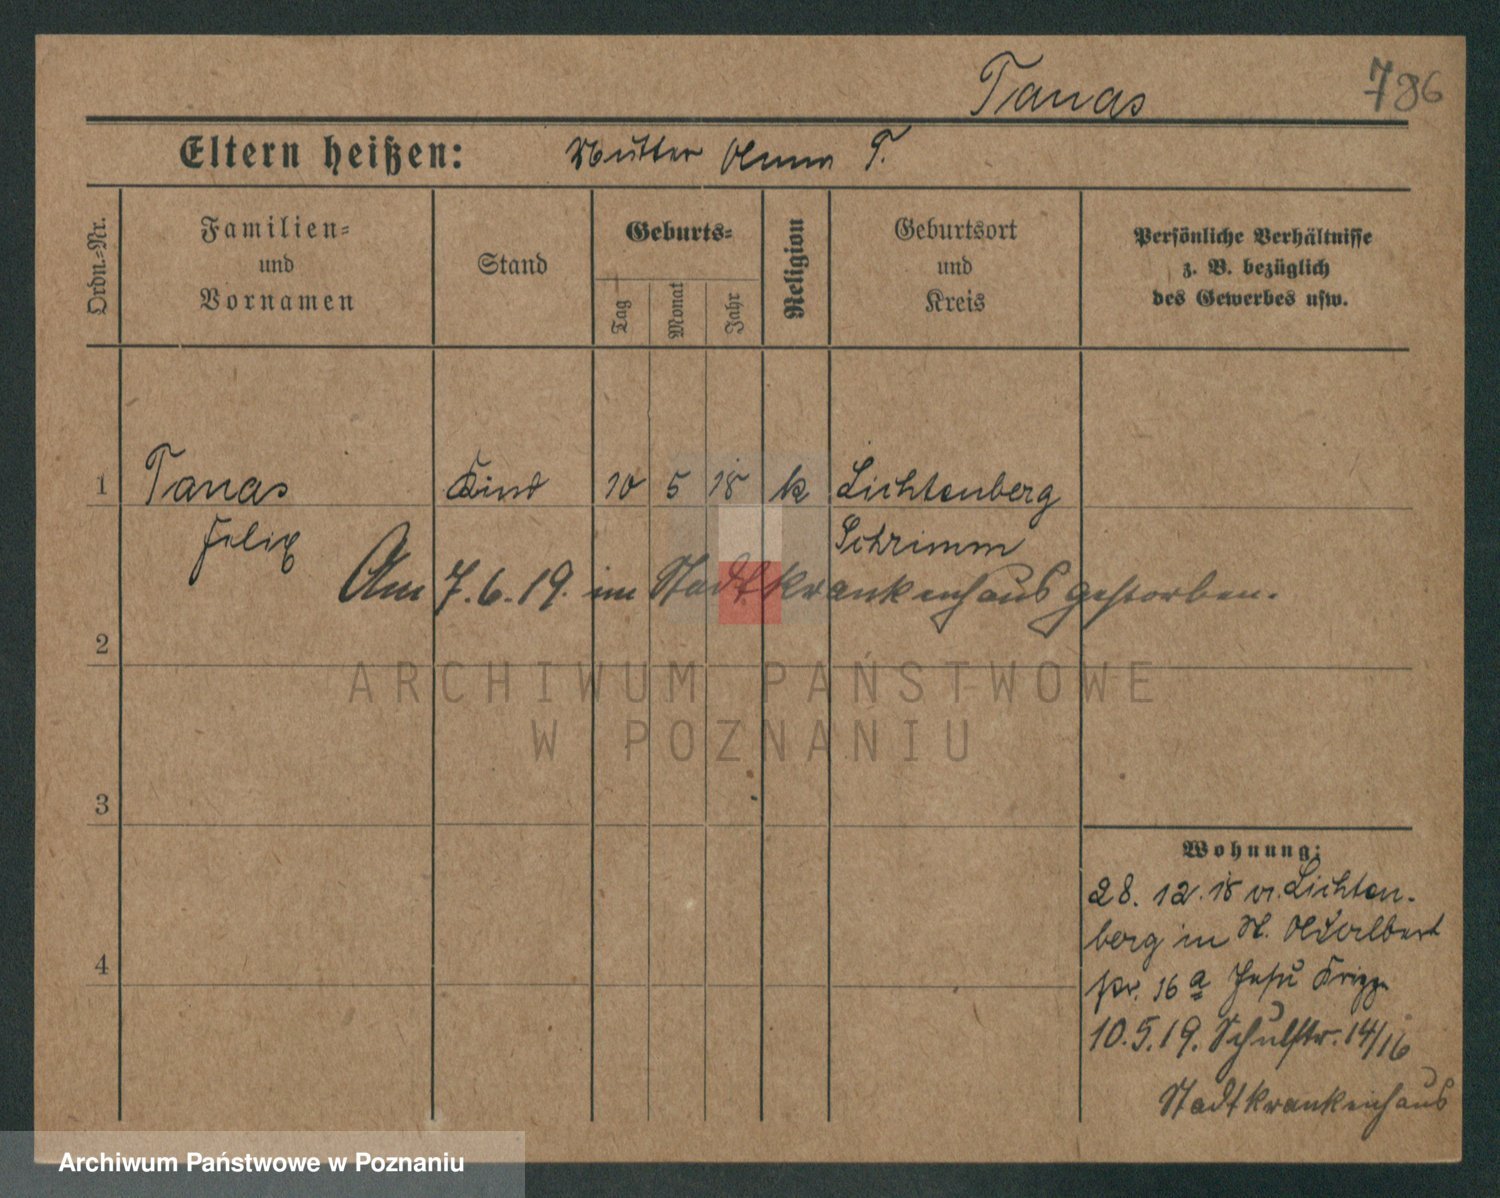 Tanas
786
Eltern heißen: Mutter Anna T.
Ordn.-Nr.
Familien-
und
Vornamen
Stand
Geburts-
Tag
Monat
Jahr
Religion
Geburtsort
und
Kreis
Persönliche Verhältnisse
z. B. bezüglich
des Gewerbes usw.
1 Tanas Kind 10 5 18 k Lichtenberg
Felix Schrimm
Am 7.6.19. im Stadtkrankenhaus gestorben.
2
ARCHIWUM PAŃSTWOWE
W POZNANIU
3
4
Wohnung:
28. 12. 18 v. Lichten-
berg in St. Adalbert
str. 16 a Jesu Krippe
10.5.19. Schulstr. 14/16
Stadtkrankenhaus
Archiwum Państwowe w Poznaniu